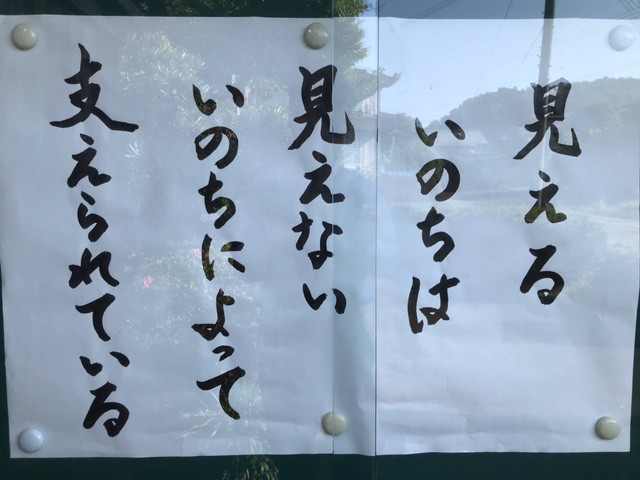 見える
いのちは
見えない
いのちによって
支えられている